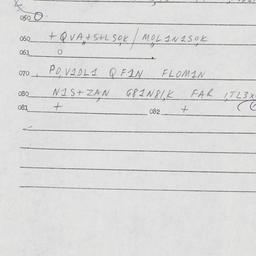 050 O
060 + QVA+S+LSOK / MOL1N1SOK
061 O
070 PO,V1DL1 QF1N FLOM1N
080 N1S+ZAN G81N81,K FAR 1TL3X
081 + 082 +